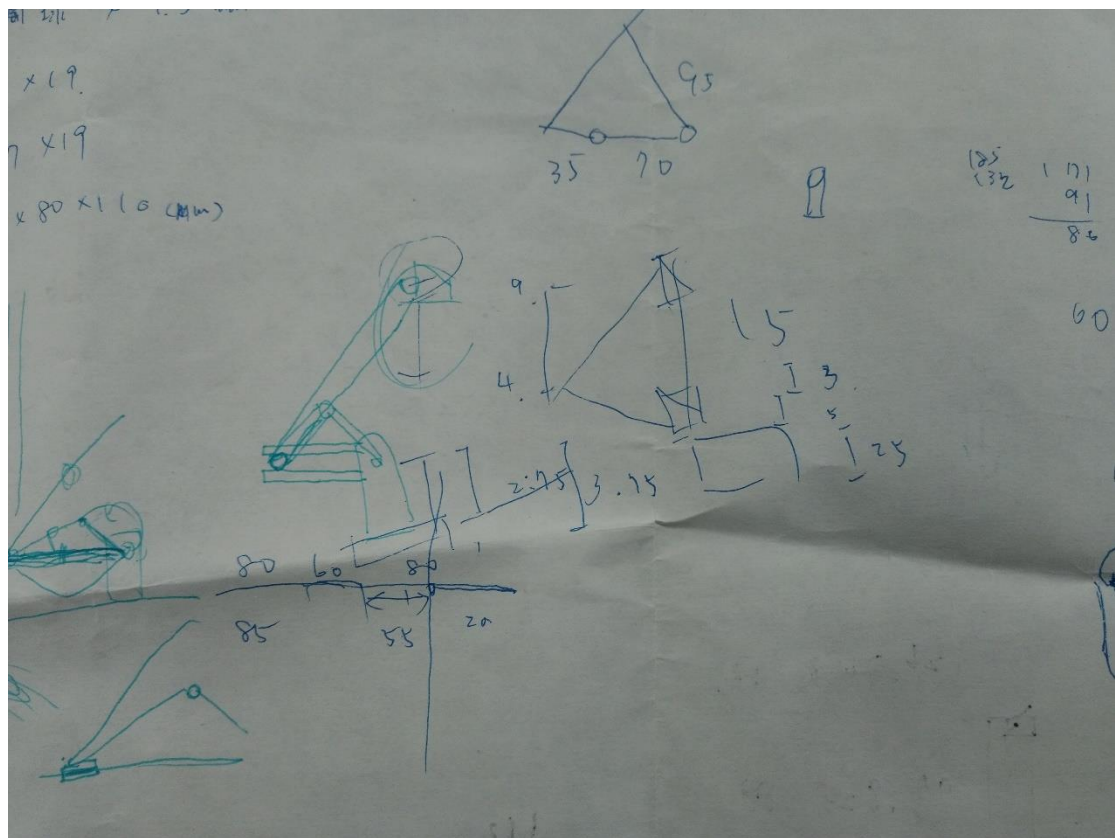 ×19
×19
×80×110 (mm)
95
35 70
171
91
80
60
9
4
15
3
5
25
2.75
3.75
80 60 80
85 55 20